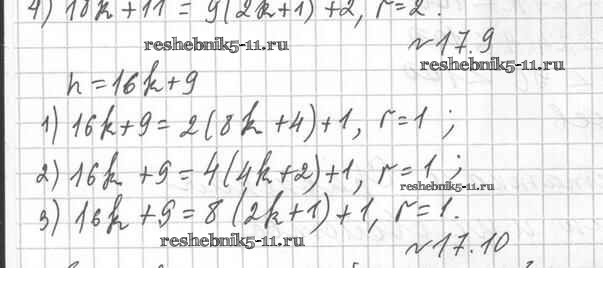 4) 18k + 11 = 9(2k+1) + 2, r = 2.
reshebnik5-11.ru
№17.9
reshebnik5-11.ru
n = 16k + 9
1) 16k + 9 = 2(8k + 4) + 1, r = 1 ;
2) 16k + 9 = 4(4k + 2) + 1, r = 1 ;
reshebnik5-11.ru
3) 16k + 9 = 8(2k + 1) + 1, r = 1.
reshebnik5-11.ru
№17.10